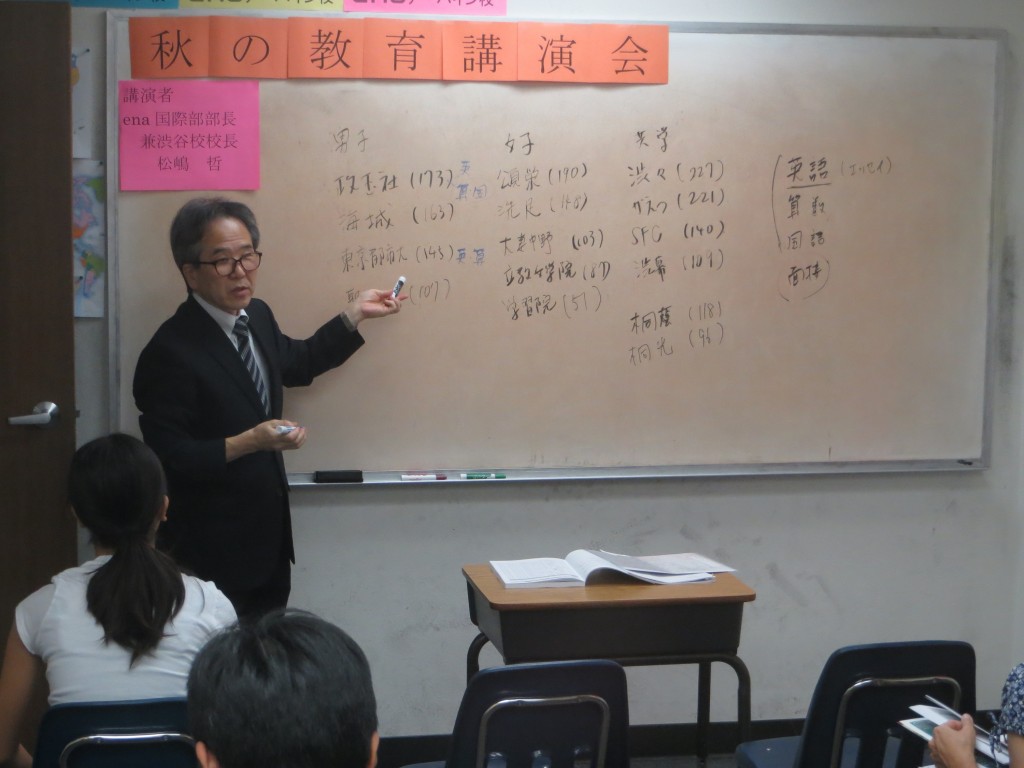 秋の教育講演会
講演者
ena国際部部長
兼渋谷校校長
松嶋 哲
男子
(173) 英
算国
海城 (163)
東京都市大 (145) 英算
(107)
女子
頌栄 (190)
洗足 (148)
大妻中野 (103)
立教女学院 (87)
学習院 (51)
共学
渋々 (227)
(221)
SFC (140)
渋幕 (109)
桐蔭 (118)
桐光 (96)
英語 (エッセイ)
算数
国語
面接